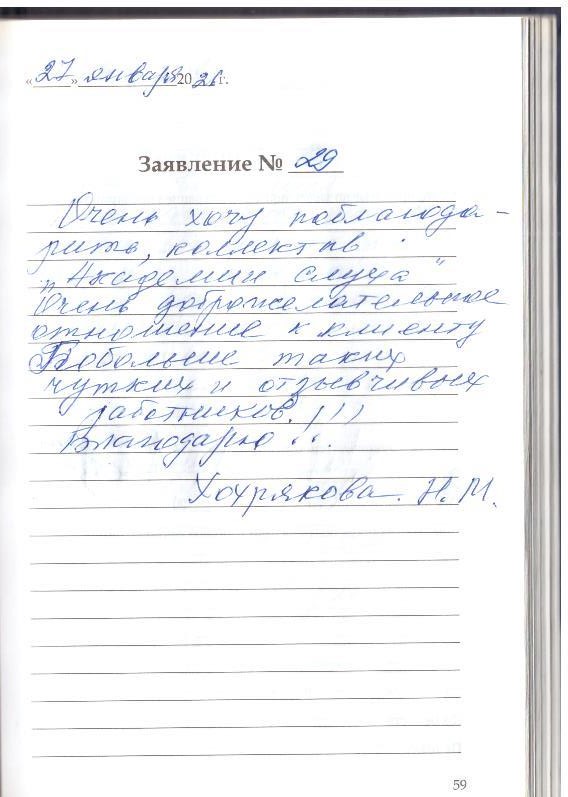 «27» января 2026 г.
Заявление № 29
Очень хочу поблагода-
рить, коллектив
„Академии слуха"
Очень доброжелательное
отношение к клиенту
Побольше таких
чутких и отзывчивых
работников!!!
Благодарю!!!
Хохрякова. Н. М.
59